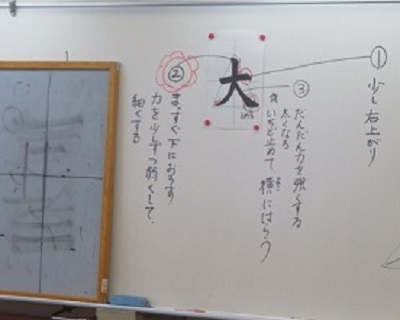 ①
少し右上がり
大
③
だんだん力を強くする
太くなる
いちど止めて、横にはらう
②
まっすぐ下におろす
力を少しずつ弱くして、
細くする